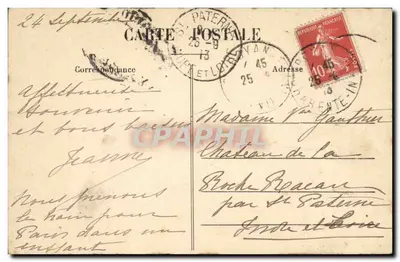 24 Septembre
CARTE POSTALE
Correspondance
Adresse
ST PATERNE
25-9
13
INDRE ET LOIRE
45
25
10 45
25
13
CHARENTE-INF
CPAPHIL
Affectueux
Souvenir
et bons baisers
Jeanne
Nous prenons
le train pour
Paris dans un
instant
Madame Vve Gauthier
Chateau de la
Roche Racan
par St Paterne
Indre et Loire